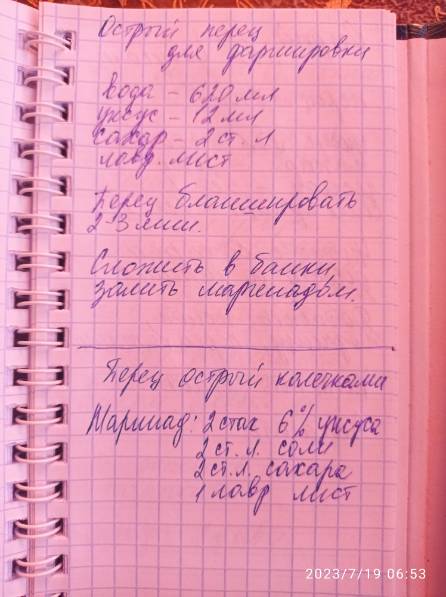 Острый перец
для фаршировки
вода - 620 мл
уксус - 12 мл
сахар - 2 ст. л
лавр. лист
Перец бланшировать
2-3 мин.
Сложить в банки,
залить маринадом.
Перец острый колечками
Маринад: 2 стак 6% уксуса
2 ст. л. соли
2 ст. л. сахара
1 лавр лист
2023/7/19 06:53